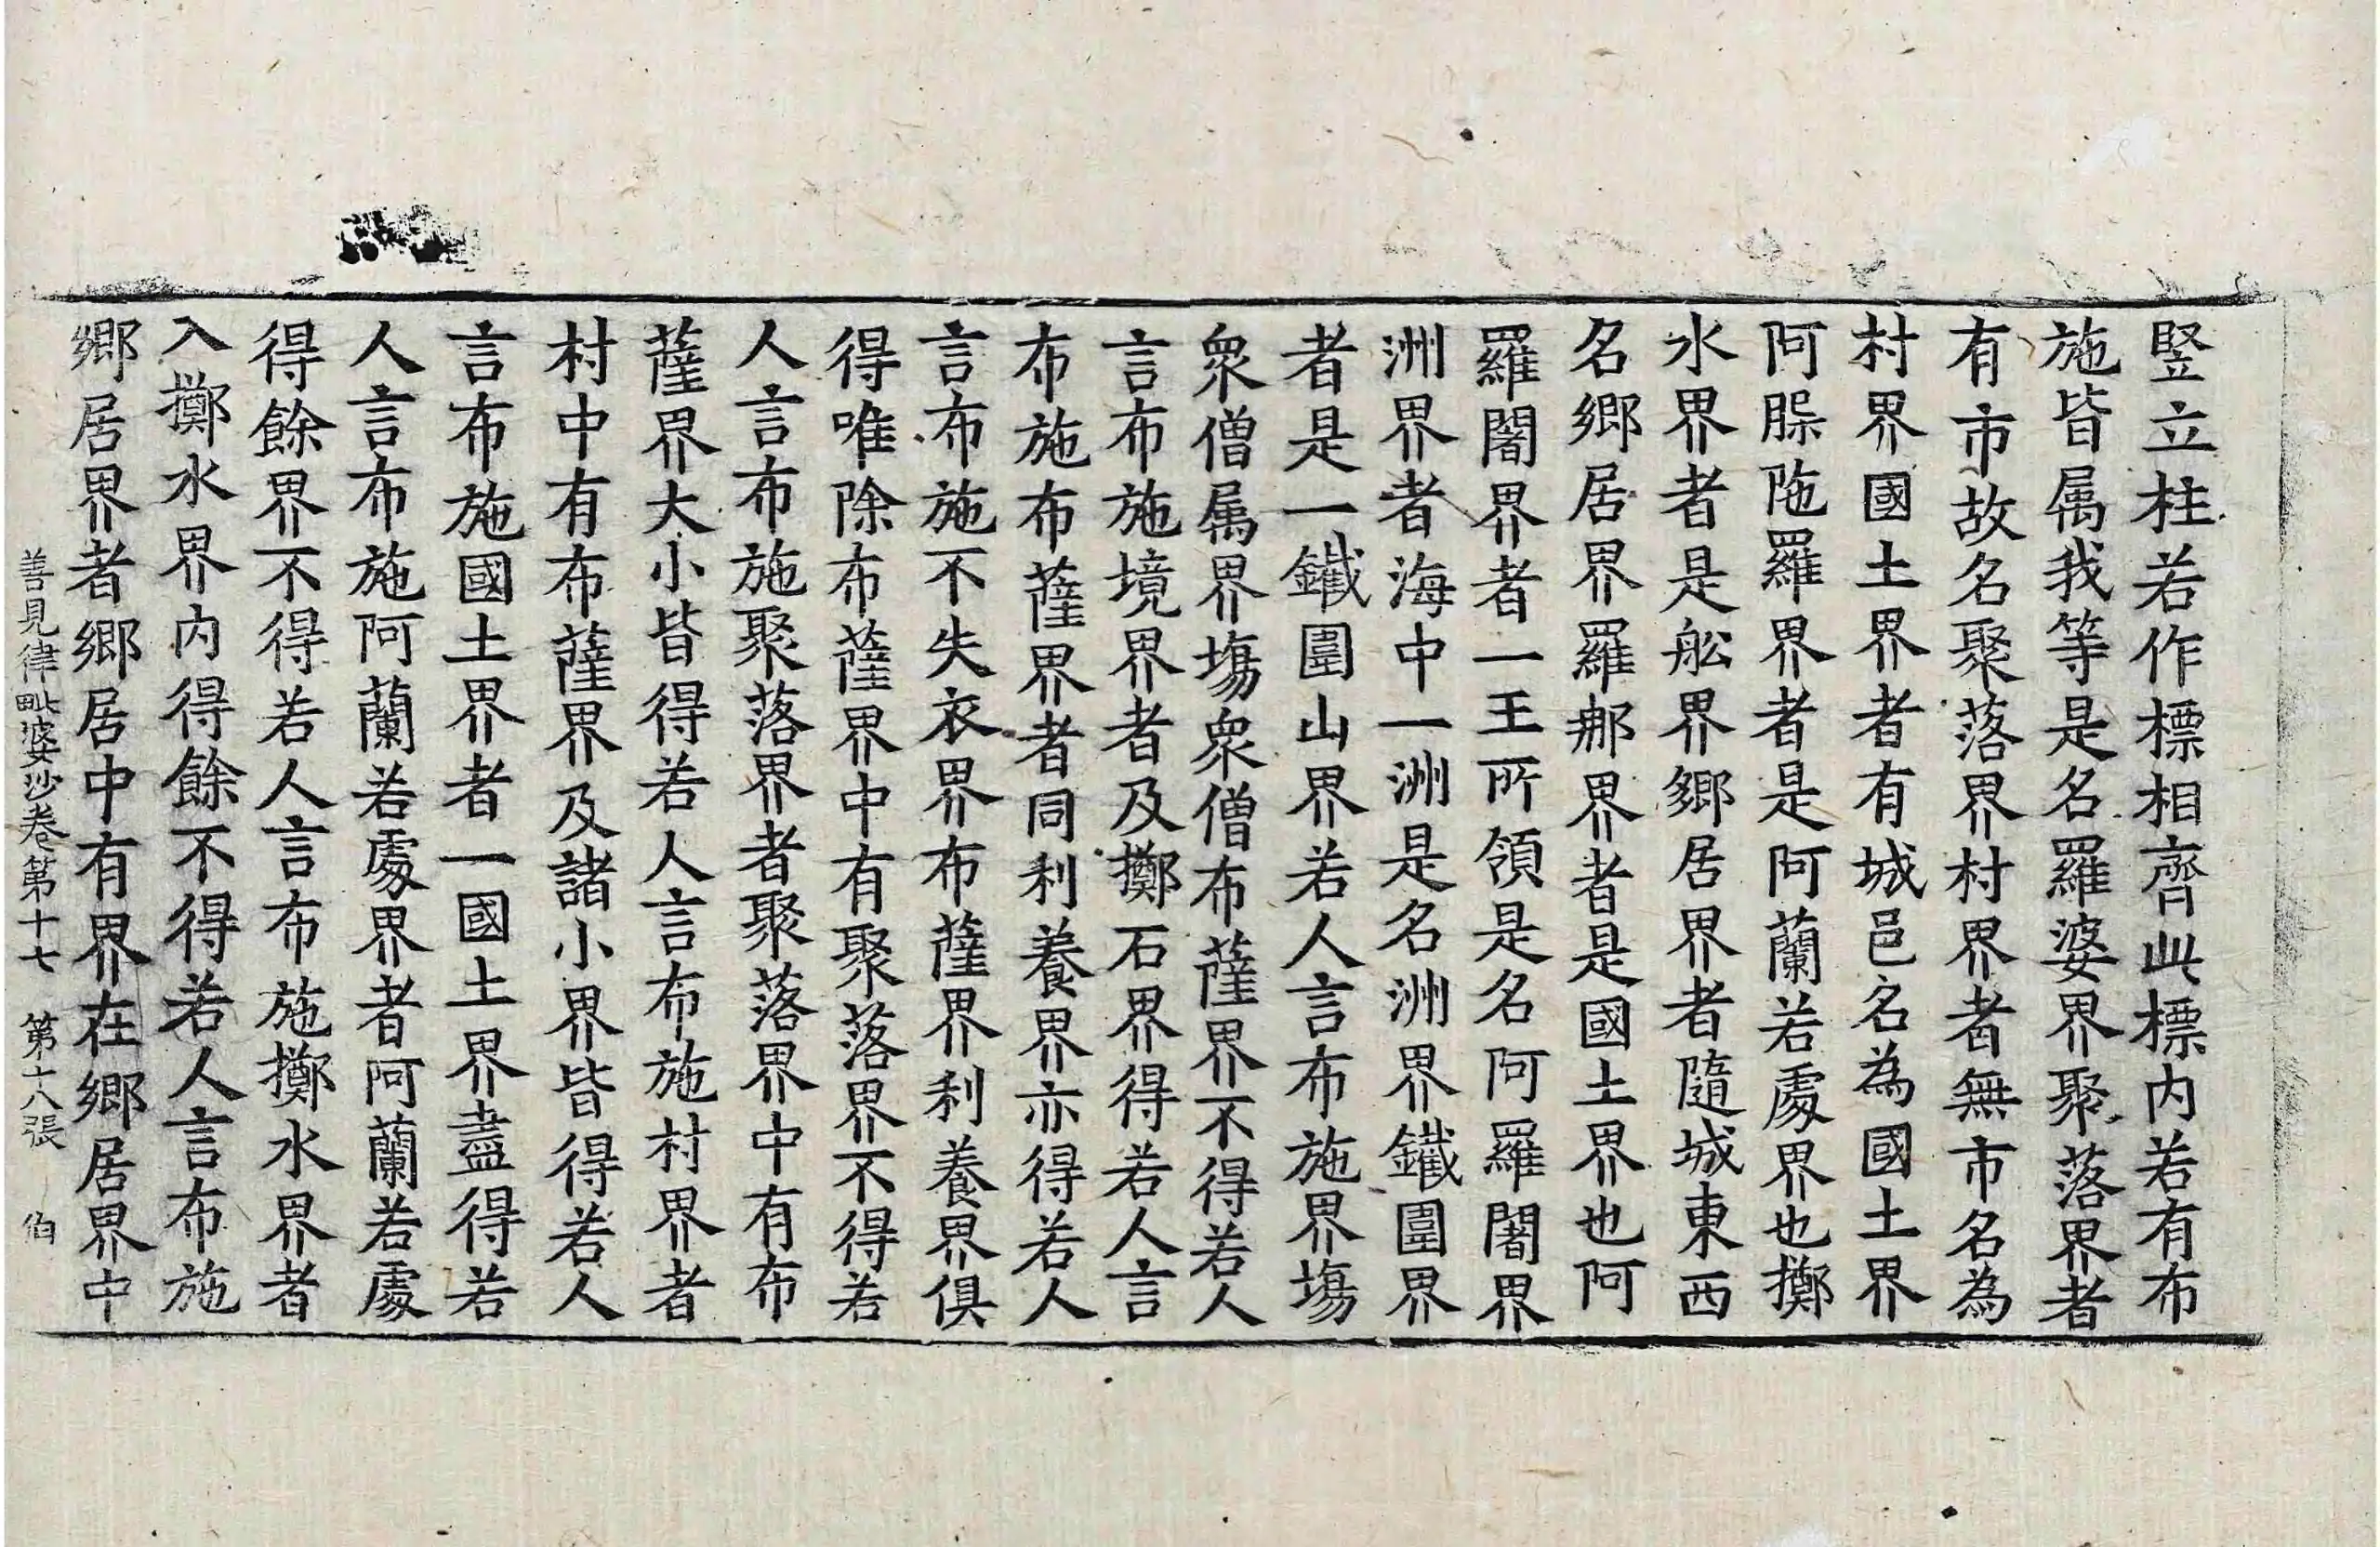 竪立柱若作標相齊此標内若有布
施皆属我等是名羅婆界聚落界者
有市故名聚落界村界者無市名為
村界國土界者有城邑名為國土界
阿䏢陁羅界者是阿蘭若處界也擲
水界者是舩界鄉居界者隨城東西
名鄉居界羅郍界者是國土界也阿
羅闍界者一王所領是名阿羅闍界
洲界者海中一洲是名洲界鐵圍界
者是一鐵圍山界若人言布施界塲
衆僧属界塲衆僧布薩界不得若人
言布施境界者及擲石界得若人言
布施布薩界者同利養界亦得若人
言布施不失衣界布薩界利養界俱
得唯除布薩界中有聚落界不得若
人言布施聚落界者聚落界中有布
薩界大小皆得若人言布施村界者
村中有布薩界及諸小界皆得若人
言布施國土界者一國土界盡得若
人言布施阿蘭若處界者阿蘭若處
得餘界不得若人言布施擲水界者
入擲水界内得餘不得若人言布施
鄉居界者鄉居中有界在鄉居界中
善見律毗婆沙卷第十七 第十八張 伯